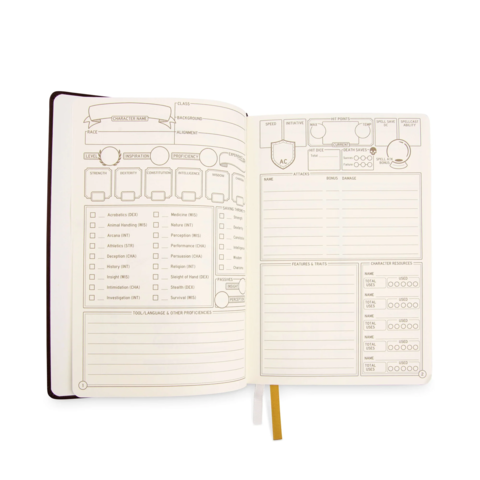 CLASS
CHARACTER NAME
BACKGROUND
RACE
ALIGNMENT
LEVEL
INSPIRATION
PROFICIENCY
STRENGTH
DEXTERITY
CONSTITUTION
INTELLIGENCE
WISDOM
Acrobatics (DEX)
Animal Handling (WIS)
Arcana (INT)
Athletics (STR)
Deception (CHA)
History (INT)
Insight (WIS)
Intimidation (CHA)
Investigation (INT)
Medicine (WIS)
Nature (INT)
Perception (WIS)
Performance (CHA)
Persuasion (CHA)
Religion (INT)
Sleight of Hand (DEX)
Stealth (DEX)
Survival (WIS)
TOOL/LANGUAGE & OTHER PROFICIENCIES
SPEED
INITIATIVE
AC
HIT POINTS
MAX
TEMP
CURRENT
HIT DICE
DEATH SAVES
SPELL SAVE
DC
SPELLCAST.
ABILITY
SPELL ATK
BONUS
ATTACKS
NAME
BONUS
DAMAGE
FEATURES & TRAITS
CHARACTER RESOURCES
NAME
TOTAL
USES
USED
NAME
TOTAL
USES
USED
NAME
TOTAL
USES
USED
NAME
TOTAL
USES
USED
NAME
TOTAL
USES
USED